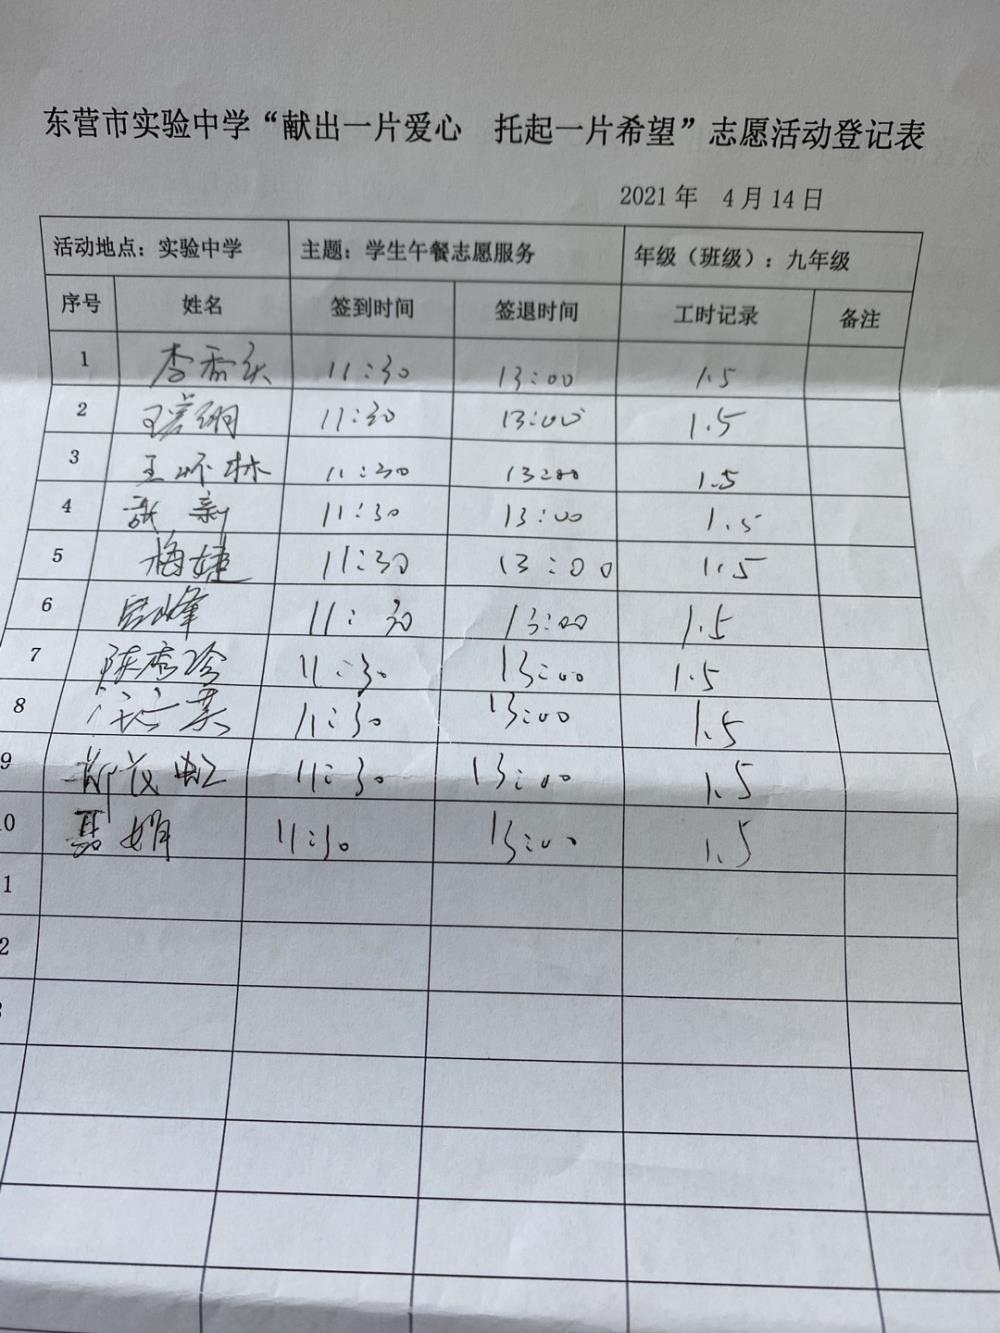 东营市实验中学“献出一片爱心 托起一片希望”志愿活动登记表
2021 年 4 月 14 日
活动地点：实验中学 主题：学生午餐志愿服务 年级（班级）：九年级
序号 姓名 签到时间 签退时间 工时记录 备注
1 11:30 13:00 1.5
2 11:30 13:00 1.5
3 王怀林 11:30 13:00 1.5
4 张新 11:30 13:00 1.5
5 梅婕 11:30 13:00 1.5
6 11:30 13:00 1.5
7 陈秀珍 11:30 13:00 1.5
8 11:30 13:00 1.5
9 11:30 13:00 1.5
0 聂娟 11:30 13:00 1.5
1
2